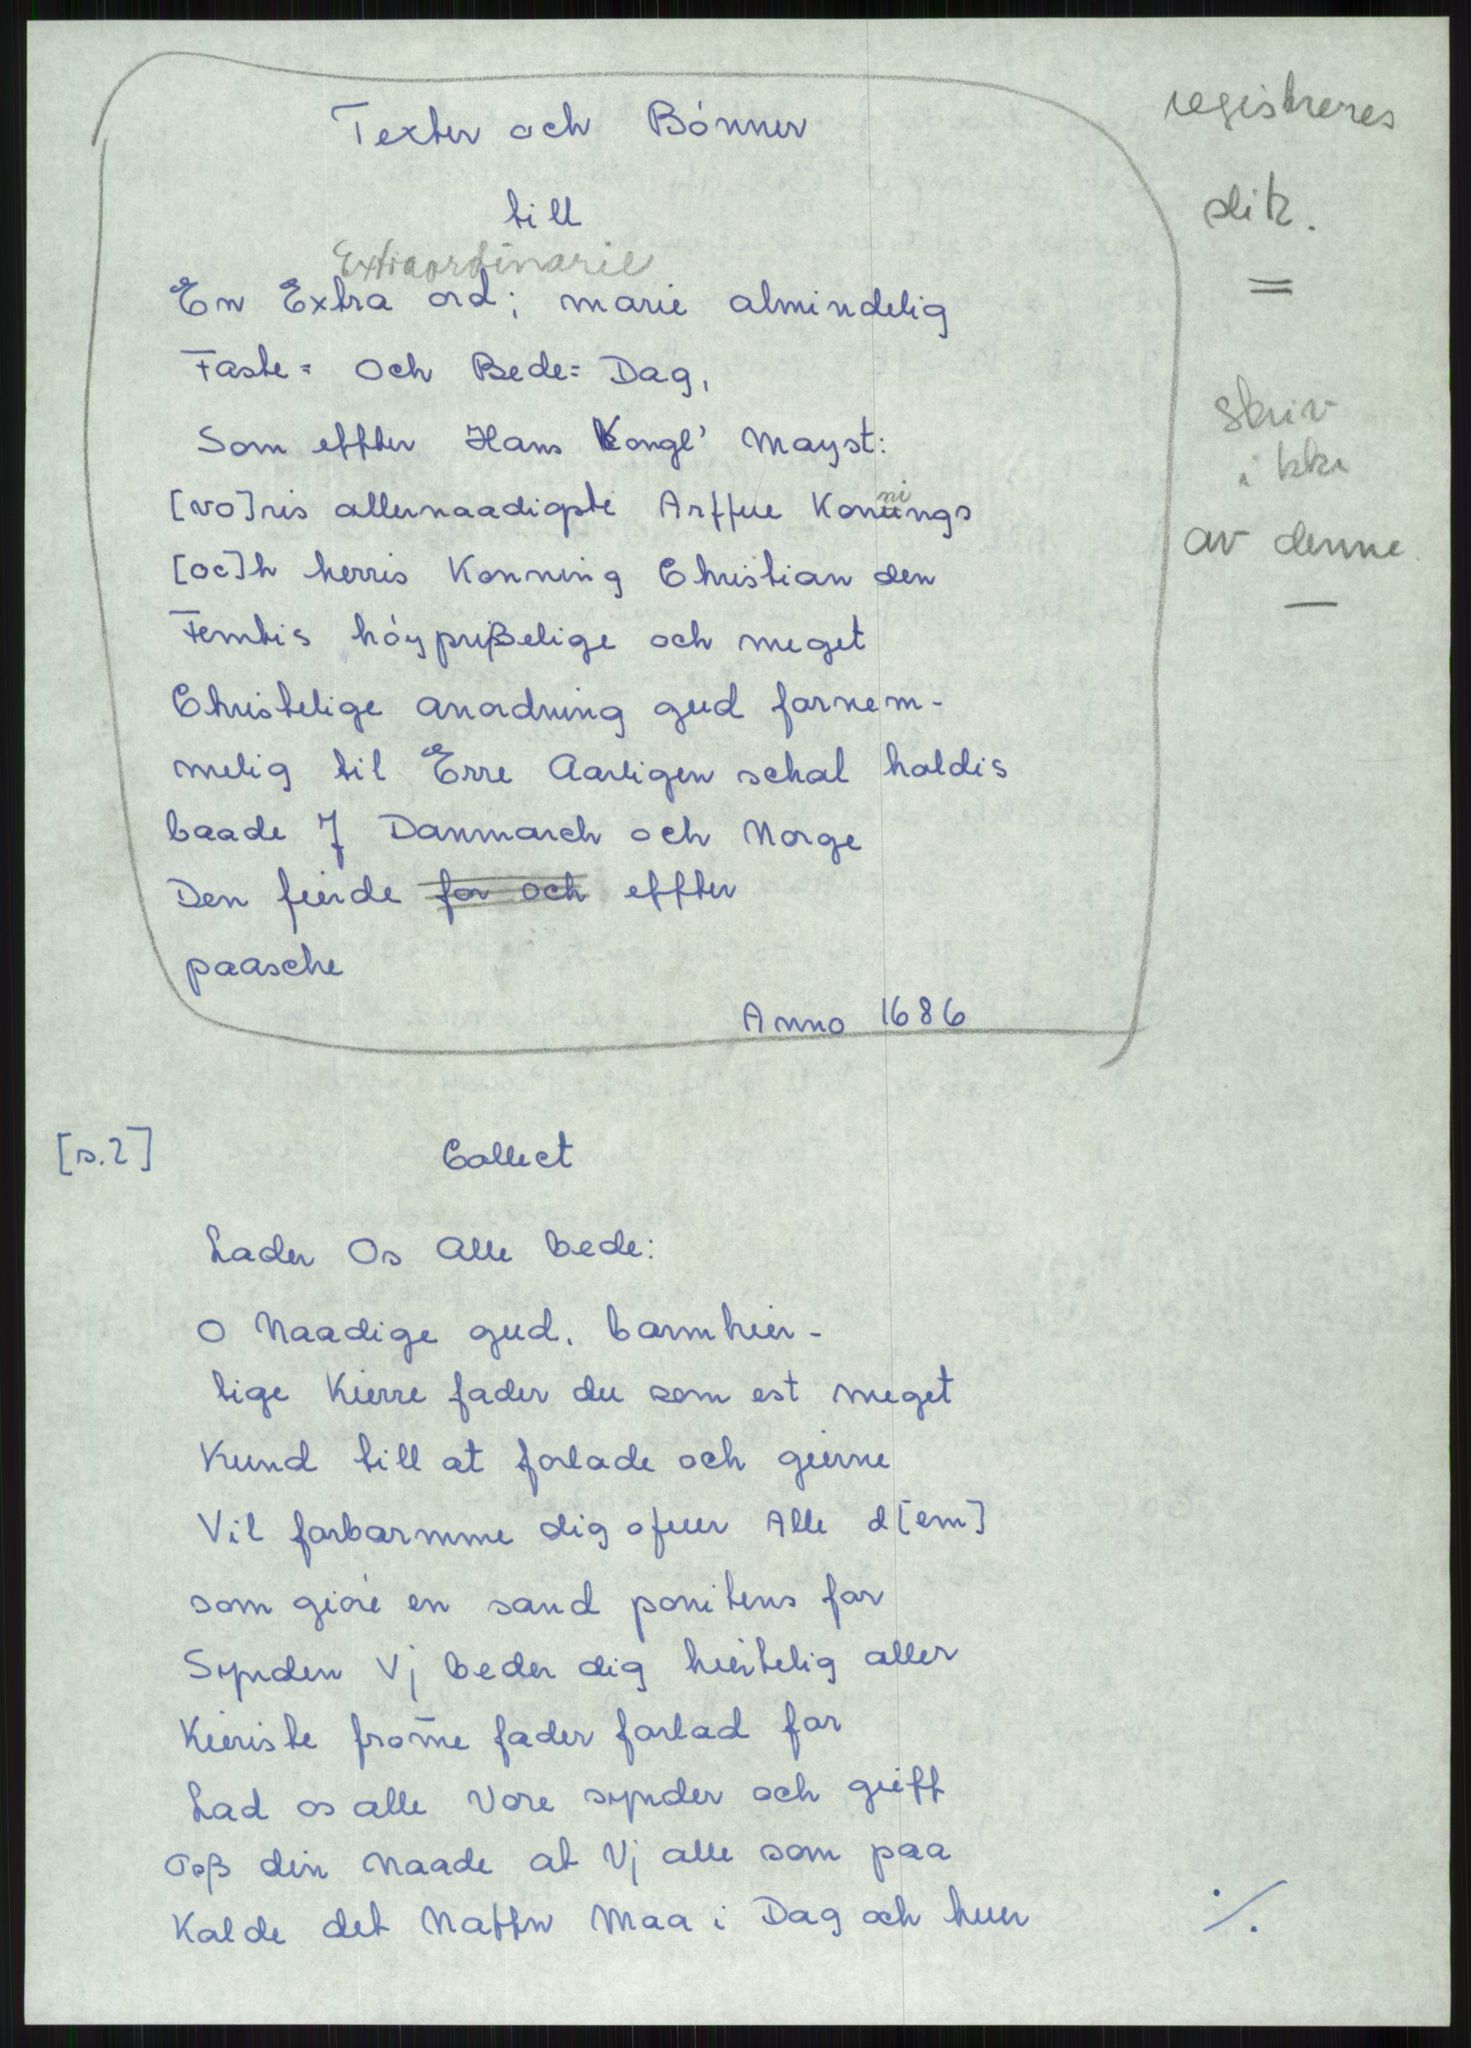 Texter och Bónner
till
Extraordinarie
En Extra ord; marie almindelig
Faste= Och Bede= Dag,
Som effter Hans Kongl' Mayst:
[vo]ris allernaadigste Arffue Konnings
[oc]h herris Konning Christian den
Femtis hóyprißelige och meget
Christelige anordning gud fornem-
melig til Erre Aarligen schal holdis
baade J Danmarch och Norge
Den fierde for och effter
paasche
Anno 1686
registreres
slik.
=
skriv
ikke
av denne
[s.2]
Collect
Lader Os Alle bede:
O Naadige gud, barmhier-
tige Kierre fader du som est meget
Kund till at forlade och gierne
Vil forbarmme dig ofuer Alle d[em]
som gióre en sand ponitens for
Synden Vj beder dig hiertelig aller
Kieriste from̄e fader forlad for
Lad os alle Vore synder och gieff
Oeß din Naade at Vj alle som paa
Kalde det Naffn Maa i Dag och huer
./.